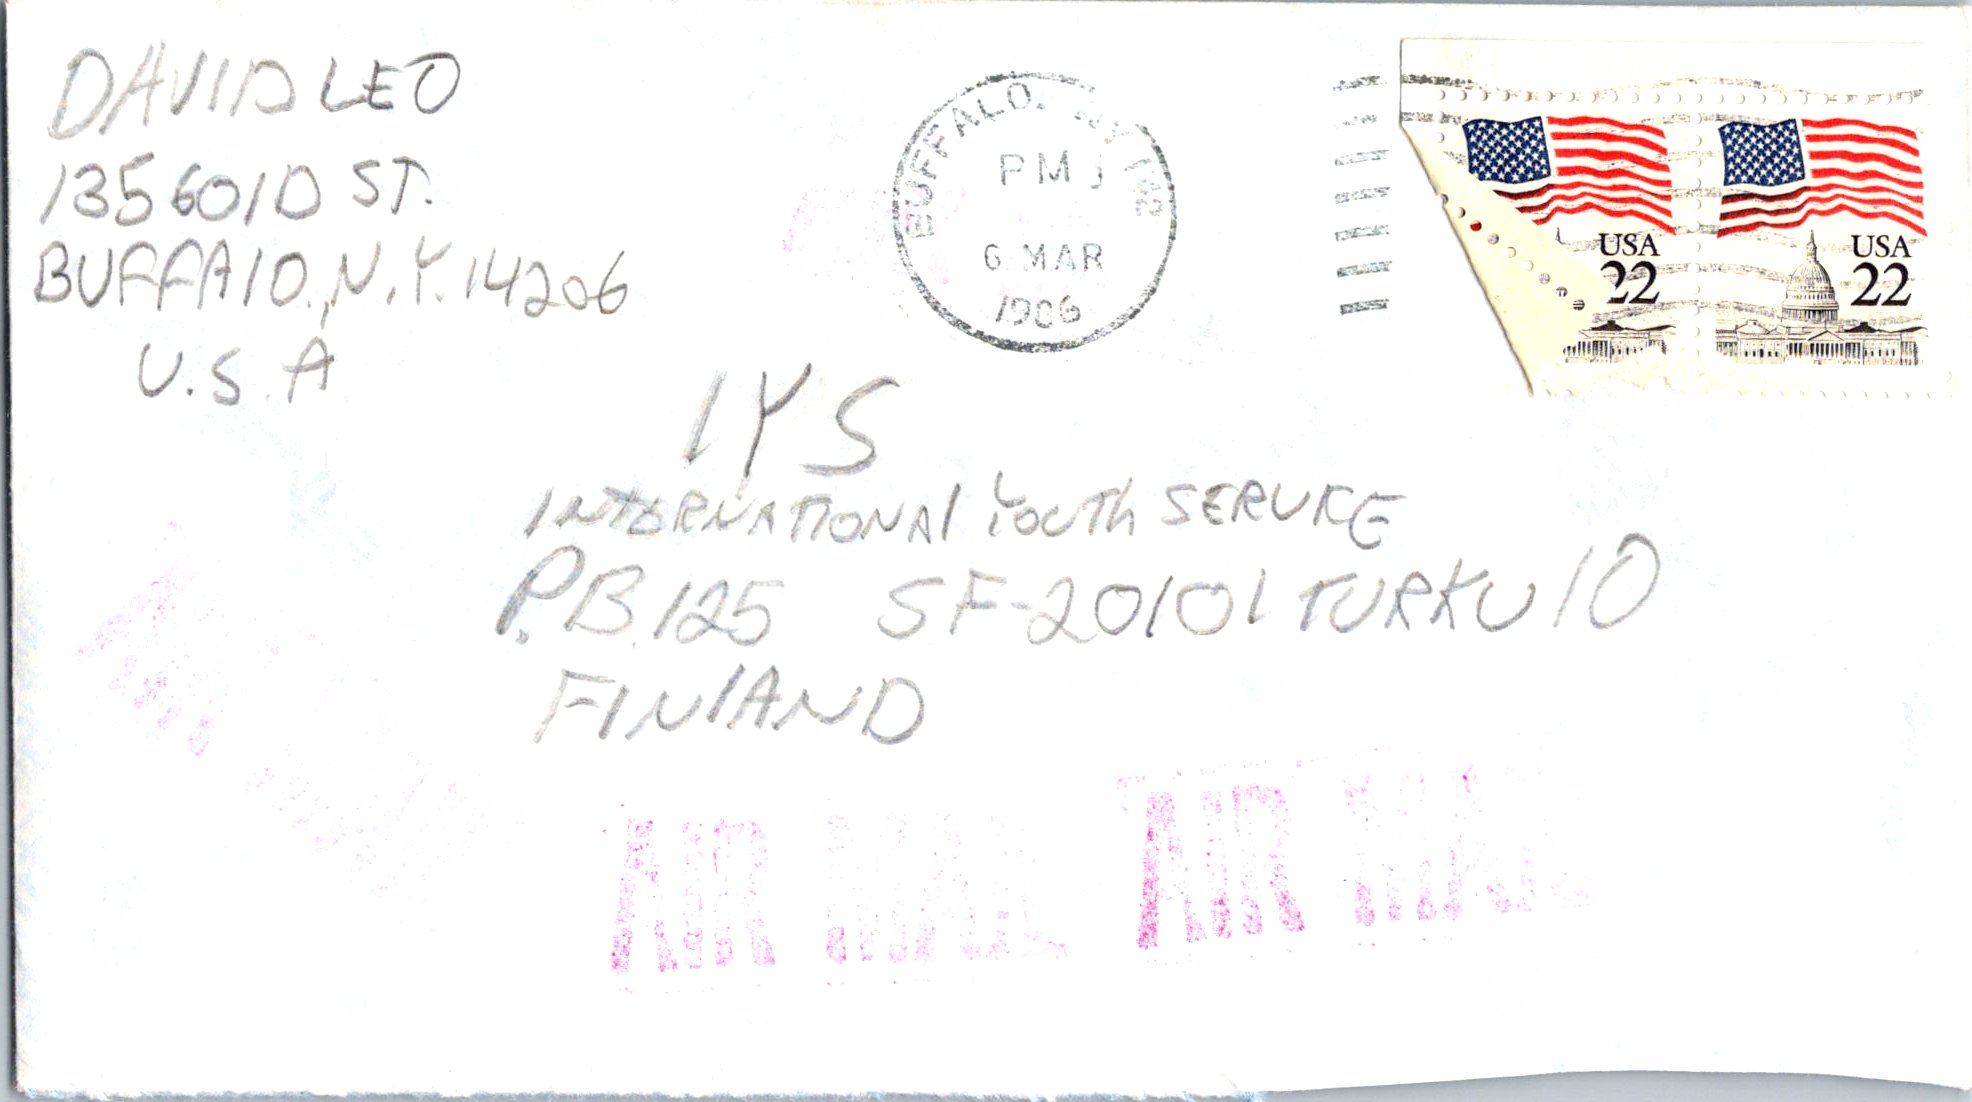 DAVID LEO
135 GOLD ST.
BUFFALO, N.Y. 14206
U.S.A
BUFFALO, NY 142
PM
6 MAR
1986
USA
22
USA
22
IYS
INTERNATIONAL YOUTH SERVICE
P.B. 125 SF-20101 TURKU 10
FINLAND
AIR MAIL
AIR MAIL